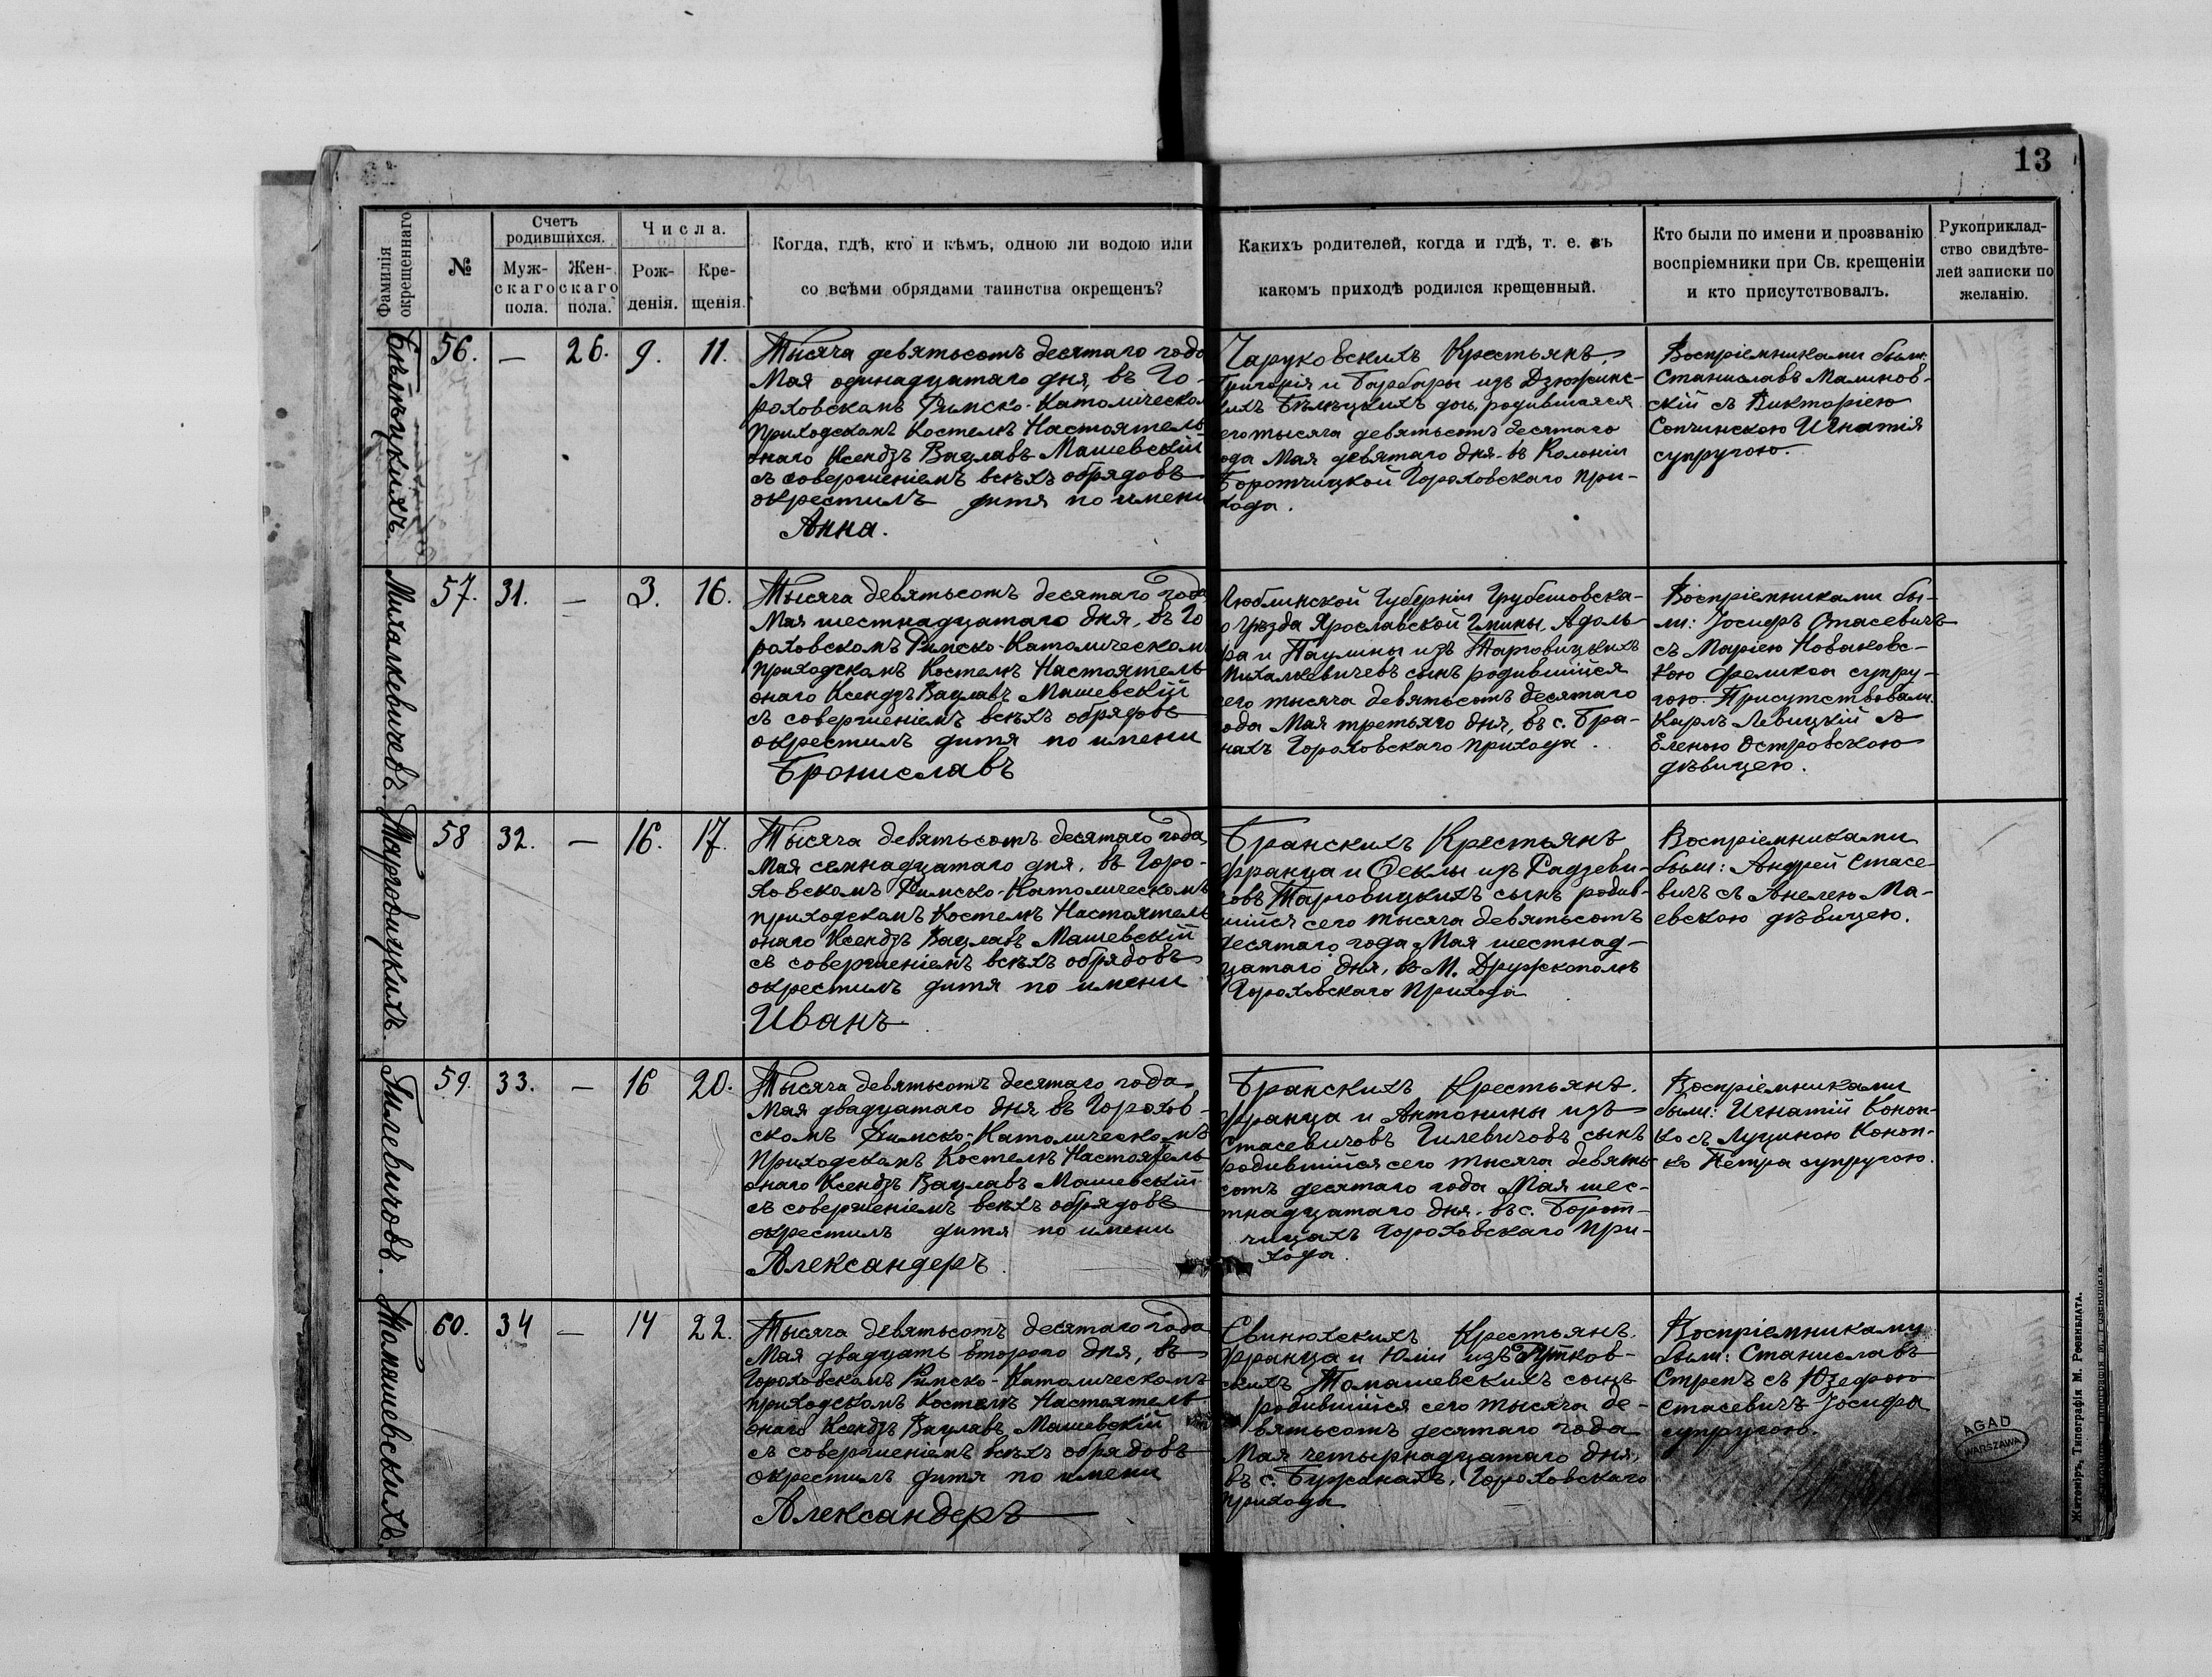 13
Фамилія окрещеннаго
№
Счетъ родившихся.
Муж-скаго пола.
Жен-скаго пола.
Числа.
Рож-денія.
Кре-щенія.
Когда, гдѣ, кто и кѣмъ, одною ли водою или
со всѣми обрядами таинства окрещенъ?
Какихъ родителей, когда и гдѣ, т. е. въ
какомъ приходѣ родился крещенный.
Кто были по имени и прозванію
воспріемники при Св. крещеніи
и кто присутствовалъ.
Рукоприклад-
ство свидѣте-
лей записки по
желанію.
Бѣлѣцкихъ.
56. — 26. 9. 11.
Тысяча девятьсотъ десятаго года
Мая одинадцатаго дня, въ Го-
роховскомъ Римско-Католическом
Приходскомъ Костелѣ Настоятель
онаго Ксендзъ Вацлавъ Машевскій
съ совершеніемъ всѣхъ обрядовъ
окрестилъ дитя по имени
Анна.
Чаруковскихъ Крестьянъ,
Григорія и Барбары изъ Дзюжинс-
кихъ Бѣлѣцкихъ дочь, родившаяся
сего тысяча девятьсотъ десятаго
года Мая девятаго дня въ Колоніи
Боротчицкой Гороховскаго при-
хода.
Воспріемниками были:
Станиславъ Малинов-
скій съ Викторіею
Сопчинскою Игнатія
супругою.
Михалкевичевъ.
57. 31. — 3. 16.
Тысяча девятьсотъ десятаго года
Мая шестнадцатаго дня, въ Го
роховскомъ Римско-Католическом
приходскомъ Костелѣ Настоятель
онаго Ксендзъ Вацлавъ Машевскій
съ совершеніемъ всѣхъ обрядовъ
окрестилъ дитя по имени
Брониславъ
Люблинской Губерніи Грубешовска-
го Уѣзда Ярославской Гмины, Адоль-
фа и Паулины изъ Тарговицкихъ
Михалкевичевъ сынъ родившійся
сего тысяча девятьсотъ десятаго
года Мая третьяго дня, въ с. Бра-
нахъ Гороховскаго прихода.
Воспріемниками бы-
ли: Іосифъ Стасевичъ
съ Маріею Коваковс-
кою Феликса супру-
гою. Присутствовали
Карлъ Левицкій съ
Еленою Островскою
дѣвицею.
Тарговицкихъ.
58 32. — 16. 17.
Тысяча девятьсотъ десятаго года
Мая семнадцатаго дня, въ Горо-
ховскомъ Римско-Католическомъ
приходскомъ Костелѣ Настоятель
онаго Ксендзъ Вацлавъ Машевскій
съ совершеніемъ всѣхъ обрядовъ
окрестилъ дитя по имени
Иванъ
Бранскихъ Крестьянъ
Франца и Ѳеклы изъ Радзеви-
човъ Тарговицкихъ сынъ родив-
шійся сего тысяча девятьсотъ
десятаго года Мая шестнад-
цатаго дня, въ М. Дружкополѣ
Гороховскаго Прихода
Воспріемниками
были: Андрей Стасе-
вичъ съ Анелею Ма-
евскою дѣвицею.
Гилевичовъ.
59. 33. — 16 20.
Тысяча девятьсотъ десятаго года
Мая двадцатаго дня въ Горохов-
скомъ Римско-Католическомъ
Приходскомъ Костелѣ Настоятель
онаго Ксендзъ Вацлавъ Машевскій
съ совершеніемъ всѣхъ обрядовъ
окрестилъ дитя по имени
Александеръ.
Бранскихъ Крестьянъ.
Франца и Антонины изъ
Стасевичовъ Гилевичовъ сынъ
родившійся сего тысяча девять-
сотъ десятаго года Мая шес-
тнадцатаго дня въ с. Борот-
чицахъ Гороховскаго При-
хода.
Воспріемниками
были: Игнатій Коноп-
ко съ Луциною Коноп-
ко Петра супругою.
Томашевскихъ
60. 34 — 14 22.
Тысяча девятьсотъ десятаго года
Мая двадцать второго дня, въ
Гороховскомъ Римско-Католическомъ
приходскомъ Костелѣ Настоятель
онаго Ксендзъ Вацлавъ Машевскій
съ совершеніемъ всѣхъ обрядовъ
окрестилъ дитя по имени
Александеръ
Свинюхскихъ Крестьянъ.
Франца и Юліи изъ Рутков-
скихъ Томашевскихъ сынъ
родившійся сего тысяча де-
вятьсотъ десятаго года
Мая четырнадцатаго дня,
въ с. Бужанахъ, Гороховскаго
прихода
Воспріемниками
были: Станиславъ
Стрепъ съ Юзефою
Стасевичъ Іосифа
супругою.
AGAD
WARSZAWA
Житоміръ, Типографія М. Розенблата.